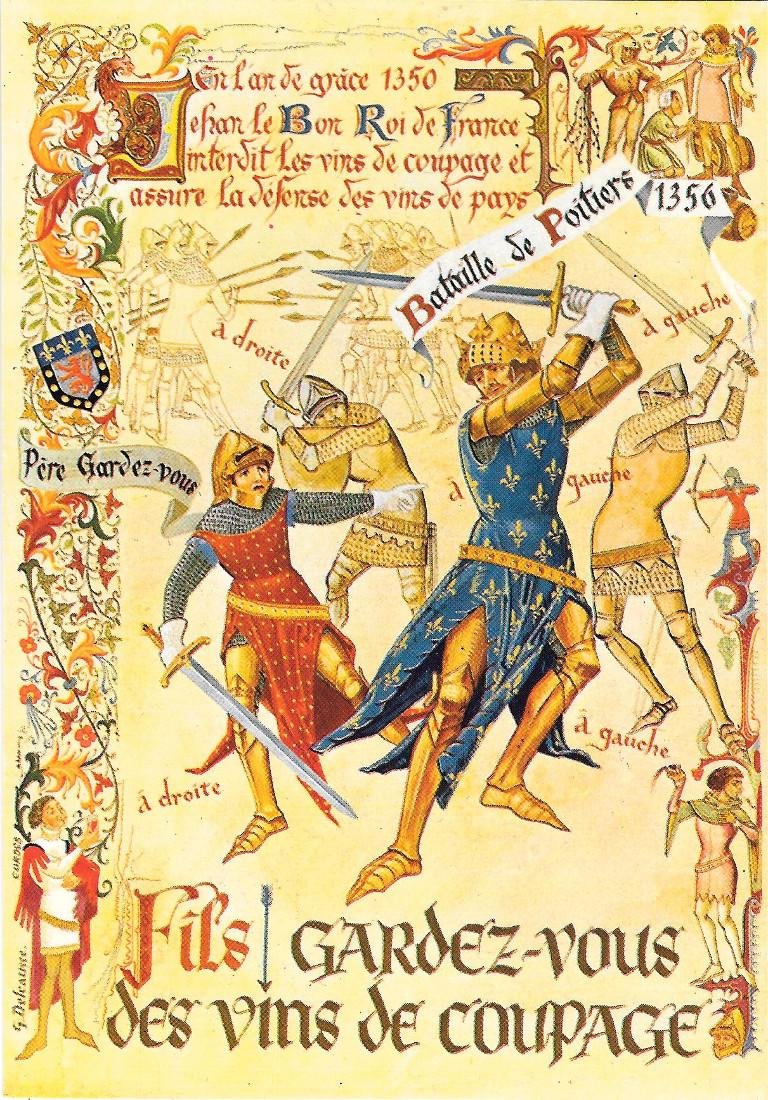 En l'an de grâce 1350
Jehan le Bon Roi de France
interdit les vins de coupage et
assure la défense des vins de pays
Bataille de Poitiers 1356
à droite
à gauche
Père Gardez-vous
à gauche
à gauche
à droite
Fils GARDEZ-vous
des vins de COUPAGE